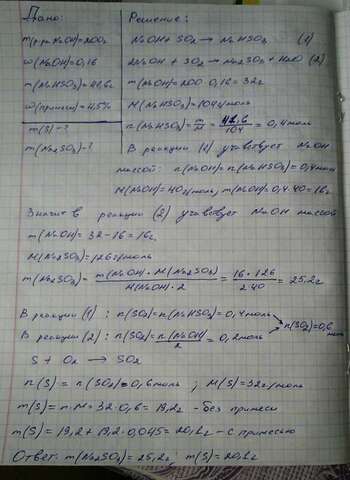 Дано:
m(р-ра NaOH)=200г
w(NaOH)=0,16
m(NaHSO₃)=41,6г
w(примеси)=4,5%
m(S)-?
m(Na₂SO₃)-?
Решение:
NaOH + SO₂ → NaHSO₃ (1)
2NaOH + SO₂ → Na₂SO₃ + H₂O (2)
m(NaOH)=200·0,16=32г
M(NaHSO₃)=104г/моль
n(NaHSO₃)= m/M = 41,6/104 = 0,4моль
В реакции (1) участвует NaOH
массой: n(NaOH)=n(NaHSO₃)=0,4моль
M(NaOH)=40г/моль, m(NaOH)=0,4·40=16г
Значит в реакции (2) участвует NaOH массой
m(NaOH)=32-16=16г
M(Na₂SO₃)=126г/моль
m(Na₂SO₃)= m(NaOH)·M(Na₂SO₃)/M(NaOH)·2 = 16·126/2·40 = 25,2г
В реакции (1): n(SO₂)=n(NaHSO₃)=0,4моль
n(SO₂)=0,6 моль
В реакции (2): n(SO₂)= n(NaOH)/2 = 0,2моль
S + O₂ → SO₂
n(S) = n(SO₂)=0,6моль ; M(S)=32г/моль
m(S)=n·M=32·0,6=19,2г - без примеси
m(S)=19,2+19,2·0,045=20,1г - с примесью
Ответ: m(Na₂SO₃)=25,2г, m(S)=20,1г